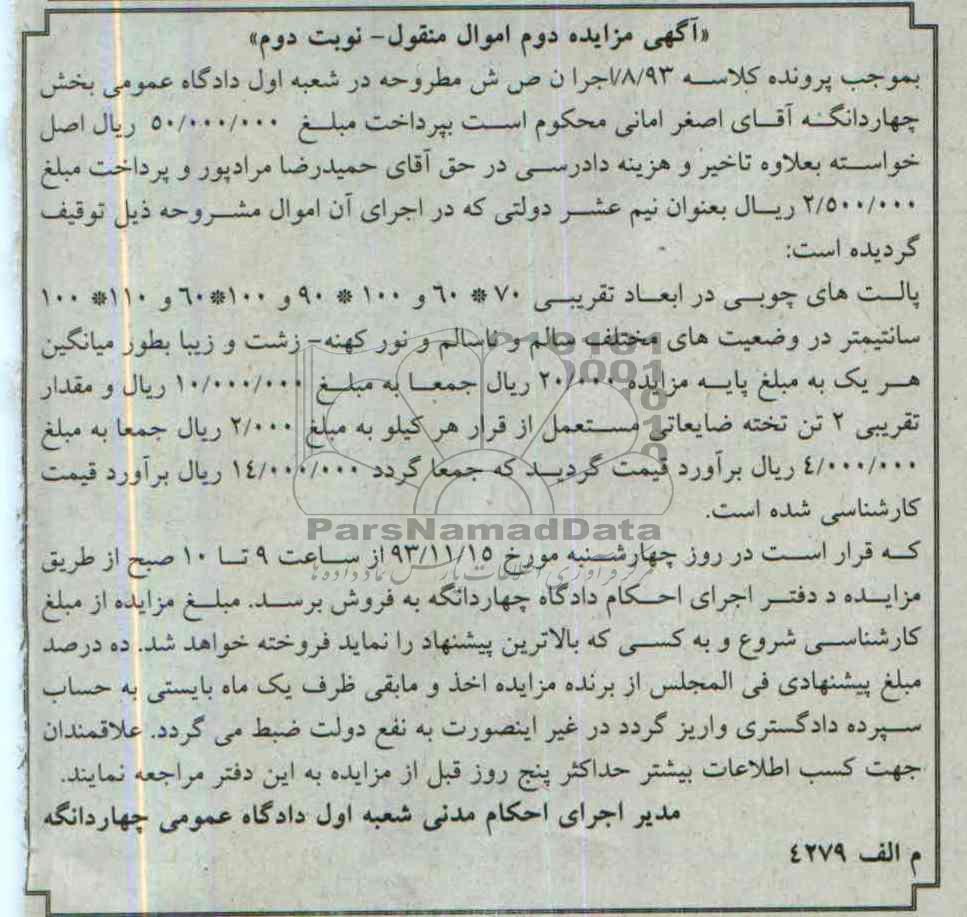 «آگهی مزایده دوم اموال منقول- نوبت دوم»
بموجب پرونده کلاسه ۸/۹۳/اجرا ن ص ش مطروحه در شعبه اول دادگاه عمومی بخش
چهاردانگه آقای اصغر امانی محکوم است بپرداخت مبلغ ۵۰/۰۰۰/۰۰۰ ریال اصل
خواسته بعلاوه تاخیر و هزینه دادرسی در حق آقای حمیدرضا مرادپور و پرداخت مبلغ
۲/۵۰۰/۰۰۰ ریال بعنوان نیم عشر دولتی که در اجرای آن اموال مشروحه ذیل توقیف
گردیده است:
پالت های چوبی در ابعاد تقریبی ۷۰ * ۶۰ و ۱۰۰ * ۹۰ و ۱۰۰*۶۰ و ۱۱۰* ۱۰۰
سانتیمتر در وضعیت های مختلف سالم و ناسالم و نور کهنه- زشت و زیبا بطور میانگین
هر یک به مبلغ پایه مزایده ۲۰/۰۰۰ ریال جمعا به مبلغ ۱۰/۰۰۰/۰۰۰ ریال و مقدار
تقریبی ۲ تن تخته ضایعاتی مستعمل از قرار هر کیلو به مبلغ ۲/۰۰۰ ریال جمعا به مبلغ
۴/۰۰۰/۰۰۰ ریال برآورد قیمت گردید که جمعا گردد ۱۴/۰۰۰/۰۰۰ ریال برآورد قیمت
کارشناسی شده است.
ParsNamadData
که قرار است در روز چهارشنبه مورخ ۹۳/۱۱/۱۵ از ساعت ۹ تا ۱۰ صبح از طریق
مزایده د دفتر اجرای احکام دادگاه چهاردانگه به فروش برسد. مبلغ مزایده از مبلغ
کارشناسی شروع و به کسی که بالاترین پیشنهاد را نماید فروخته خواهد شد. ده درصد
مبلغ پیشنهادی فی المجلس از برنده مزایده اخذ و مابقی ظرف یک ماه بایستی به حساب
سپرده دادگستری واریز گردد در غیر اینصورت به نفع دولت ضبط می گردد. علاقمندان
جهت کسب اطلاعات بیشتر حداکثر پنج روز قبل از مزایده به این دفتر مراجعه نمایند.
مدیر اجرای احکام مدنی شعبه اول دادگاه عمومی چهاردانگه
م الف ۴۲۷۹